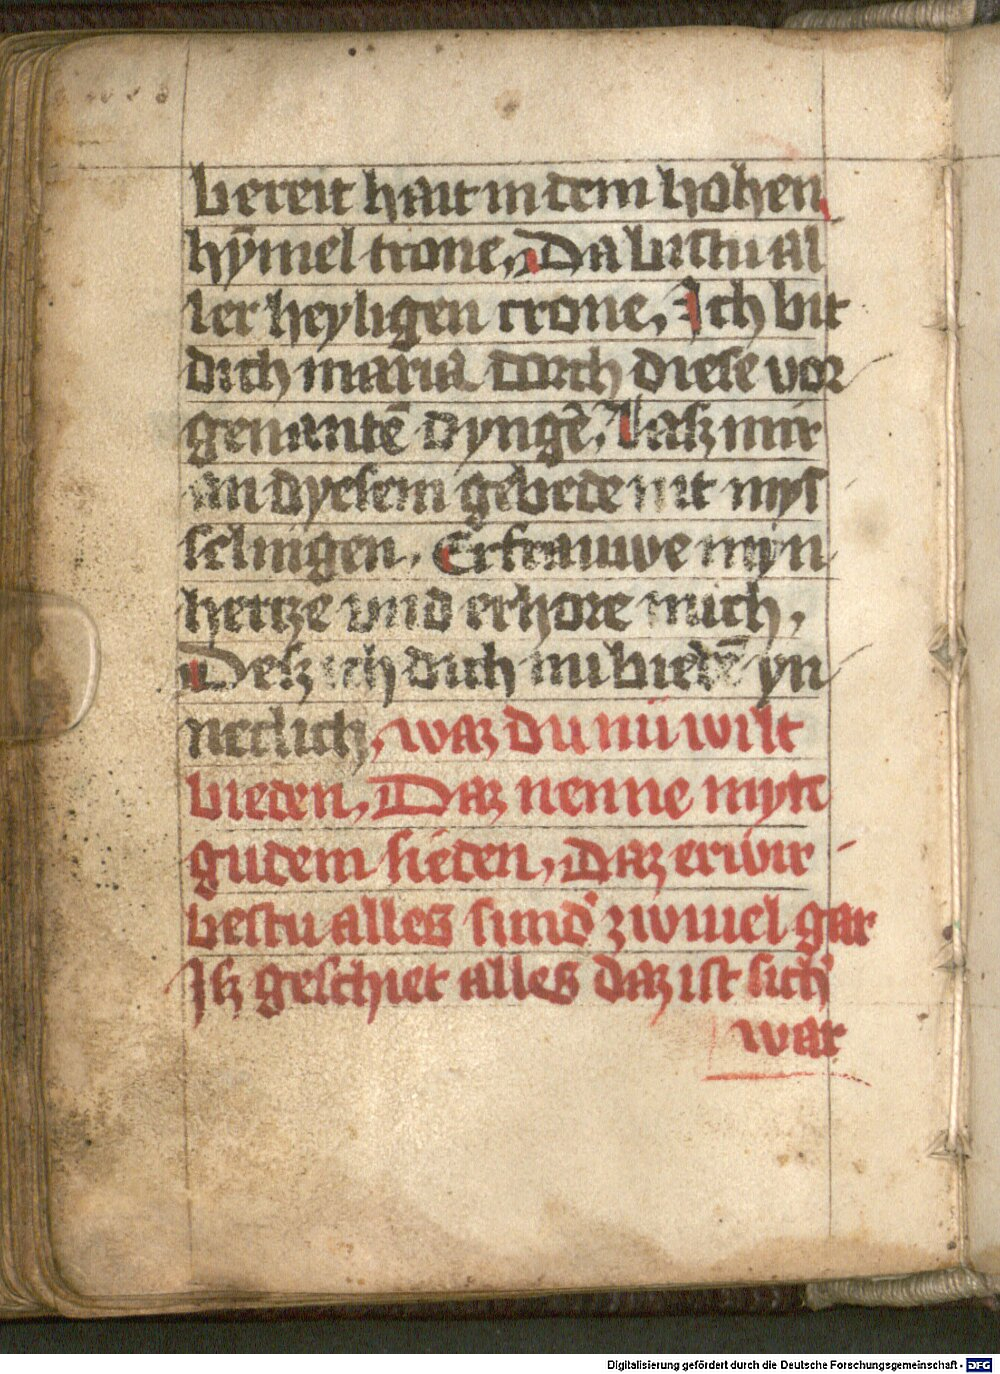 bereit hait in dem hohen
hȳmel trone, Da bistu al
ler heyligen crone, Ich bit
dich maria dorch diese vor
genantē dyngē, Lasz mir
an dyesem gebede nit mys
selingen, Erfrauwe myn
hertze vnd erhore mich,
Desz ich dich nu biedē yn
neclich, waz du nū wilt
bieden, Daz nenne myt
gudem sieden, Daz erwir
bestu alles sund' zwiuel gar
Isz geschiet alles daz ist sich'
war
Digitalisierung gefördert durch die Deutsche Forschungsgemeinschaft - DFG